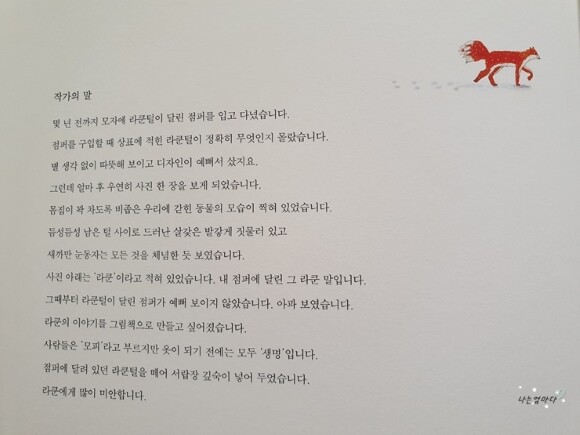 작가의 말
몇 년 전까지 모자에 라쿤털이 달린 점퍼를 입고 다녔습니다.
점퍼를 구입할 때 상표에 적힌 라쿤털이 정확히 무엇인지 몰랐습니다.
별 생각 없이 따뜻해 보이고 디자인이 예뻐서 샀지요.
그런데 얼마 후 우연히 사진 한 장을 보게 되었습니다.
몸집이 꽉 차도록 비좁은 우리에 갇힌 동물의 모습이 찍혀 있었습니다.
듬성듬성 남은 털 사이로 드러난 살갗은 발갛게 짓물러 있고
새까만 눈동자는 모든 것을 체념한 듯 보였습니다.
사진 아래는 '라쿤'이라고 적혀 있었습니다. 내 점퍼에 달린 그 라쿤 말입니다.
그때부터 라쿤털이 달린 점퍼가 예뻐 보이지 않았습니다. 아파 보였습니다.
라쿤의 이야기를 그림책으로 만들고 싶어졌습니다.
사람들은 '모피'라고 부르지만 옷이 되기 전에는 모두 '생명'입니다.
점퍼에 달려 있던 라쿤털을 떼어 서랍장 깊숙이 넣어 두었습니다.
라쿤에게 많이 미안합니다.
나는엄마다